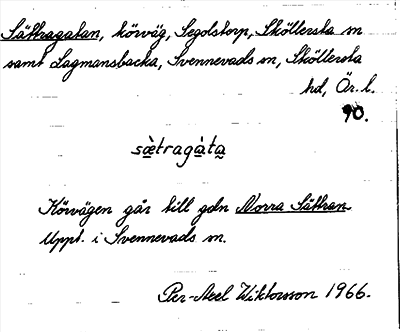 Sättragatan, körväg, Segolstorp, Sköllersta sn
samt Lagmansbacka, Svennevads sn, Sköllersta
hd, Ör. l.
90.
sætragàta
Körvägen går till gdn Norra Sättran
Uppt. i Svennevads sn.
Per-Axel Wiktorsson 1966.